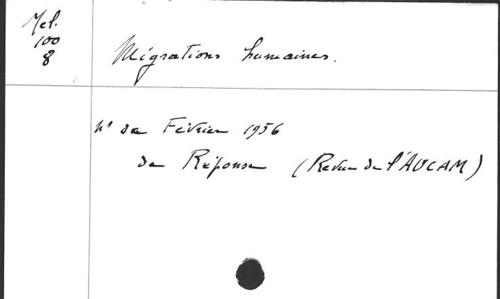 Mel.
100
8
Migrations humaines.
n° de Février 1956
de Réponse (Revue de l'AUCAM)